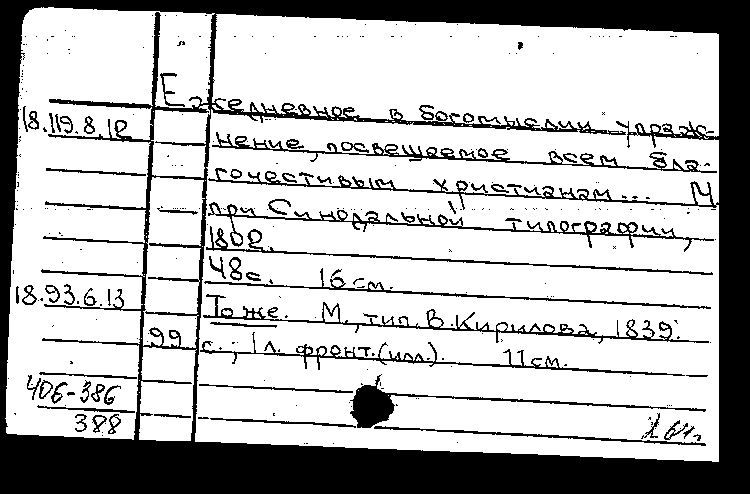 Ежедневное в богомыслии упраж-
18.119.8.12
нение, посвещаемое всем бла-
гочестивым христианам... М.
при Синодальной типографии,
1802.
48с. 16 см.
18.93.6.13
То же. М., тип. В. Кирилова, 1839.
99 с.; 1 л. фронт. (илл.). 11 см.
406-386
388